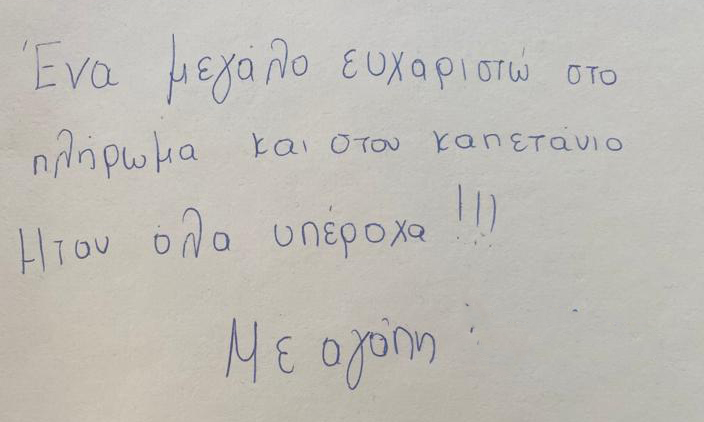 Ένα μεγάλο ευχαριστώ στο
πλήρωμα και στον καπετάνιο
Ηταν όλα υπέροχα !!!
Με αγάπη :